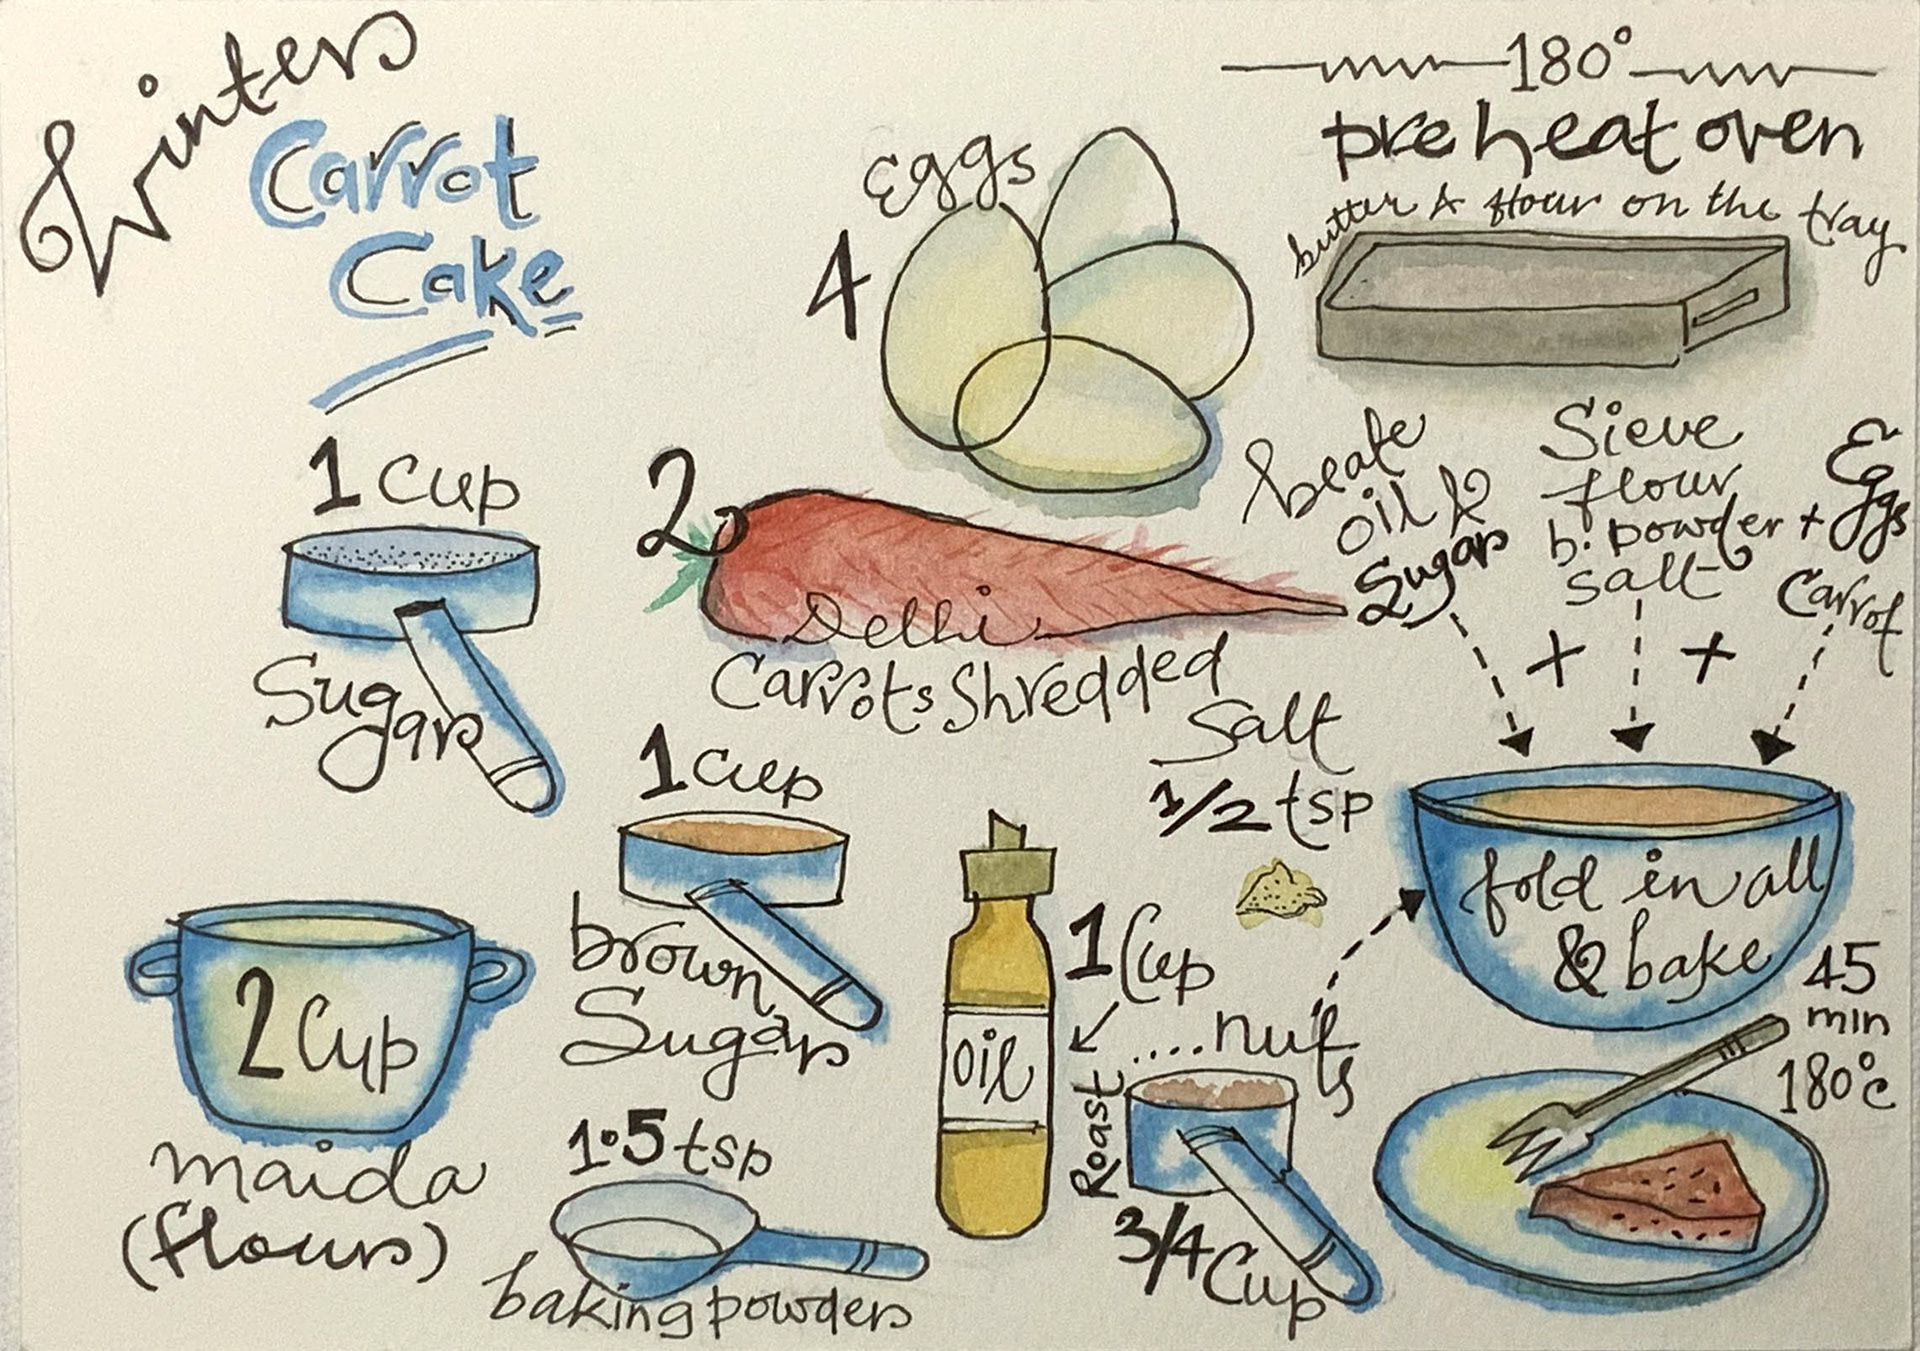 Winter
Carrot
Cake
1 Cup
Sugar
2 Cup
maida
(flour)
1 Cup
brown
Sugar
1.5 tsp
baking powder
4
Eggs
2
Delhi
Carrots Shredded
oil
1 Cup
Salt
1/2 tsp
....nuts
Roast
3/4 Cup
180°
preheat oven
butter & flour on the tray
beate
oil &
Sugar
+
Sieve
flour
b. powder
salt
+
+ Eggs
Carrot
fold in all
& bake
45
min
180°c